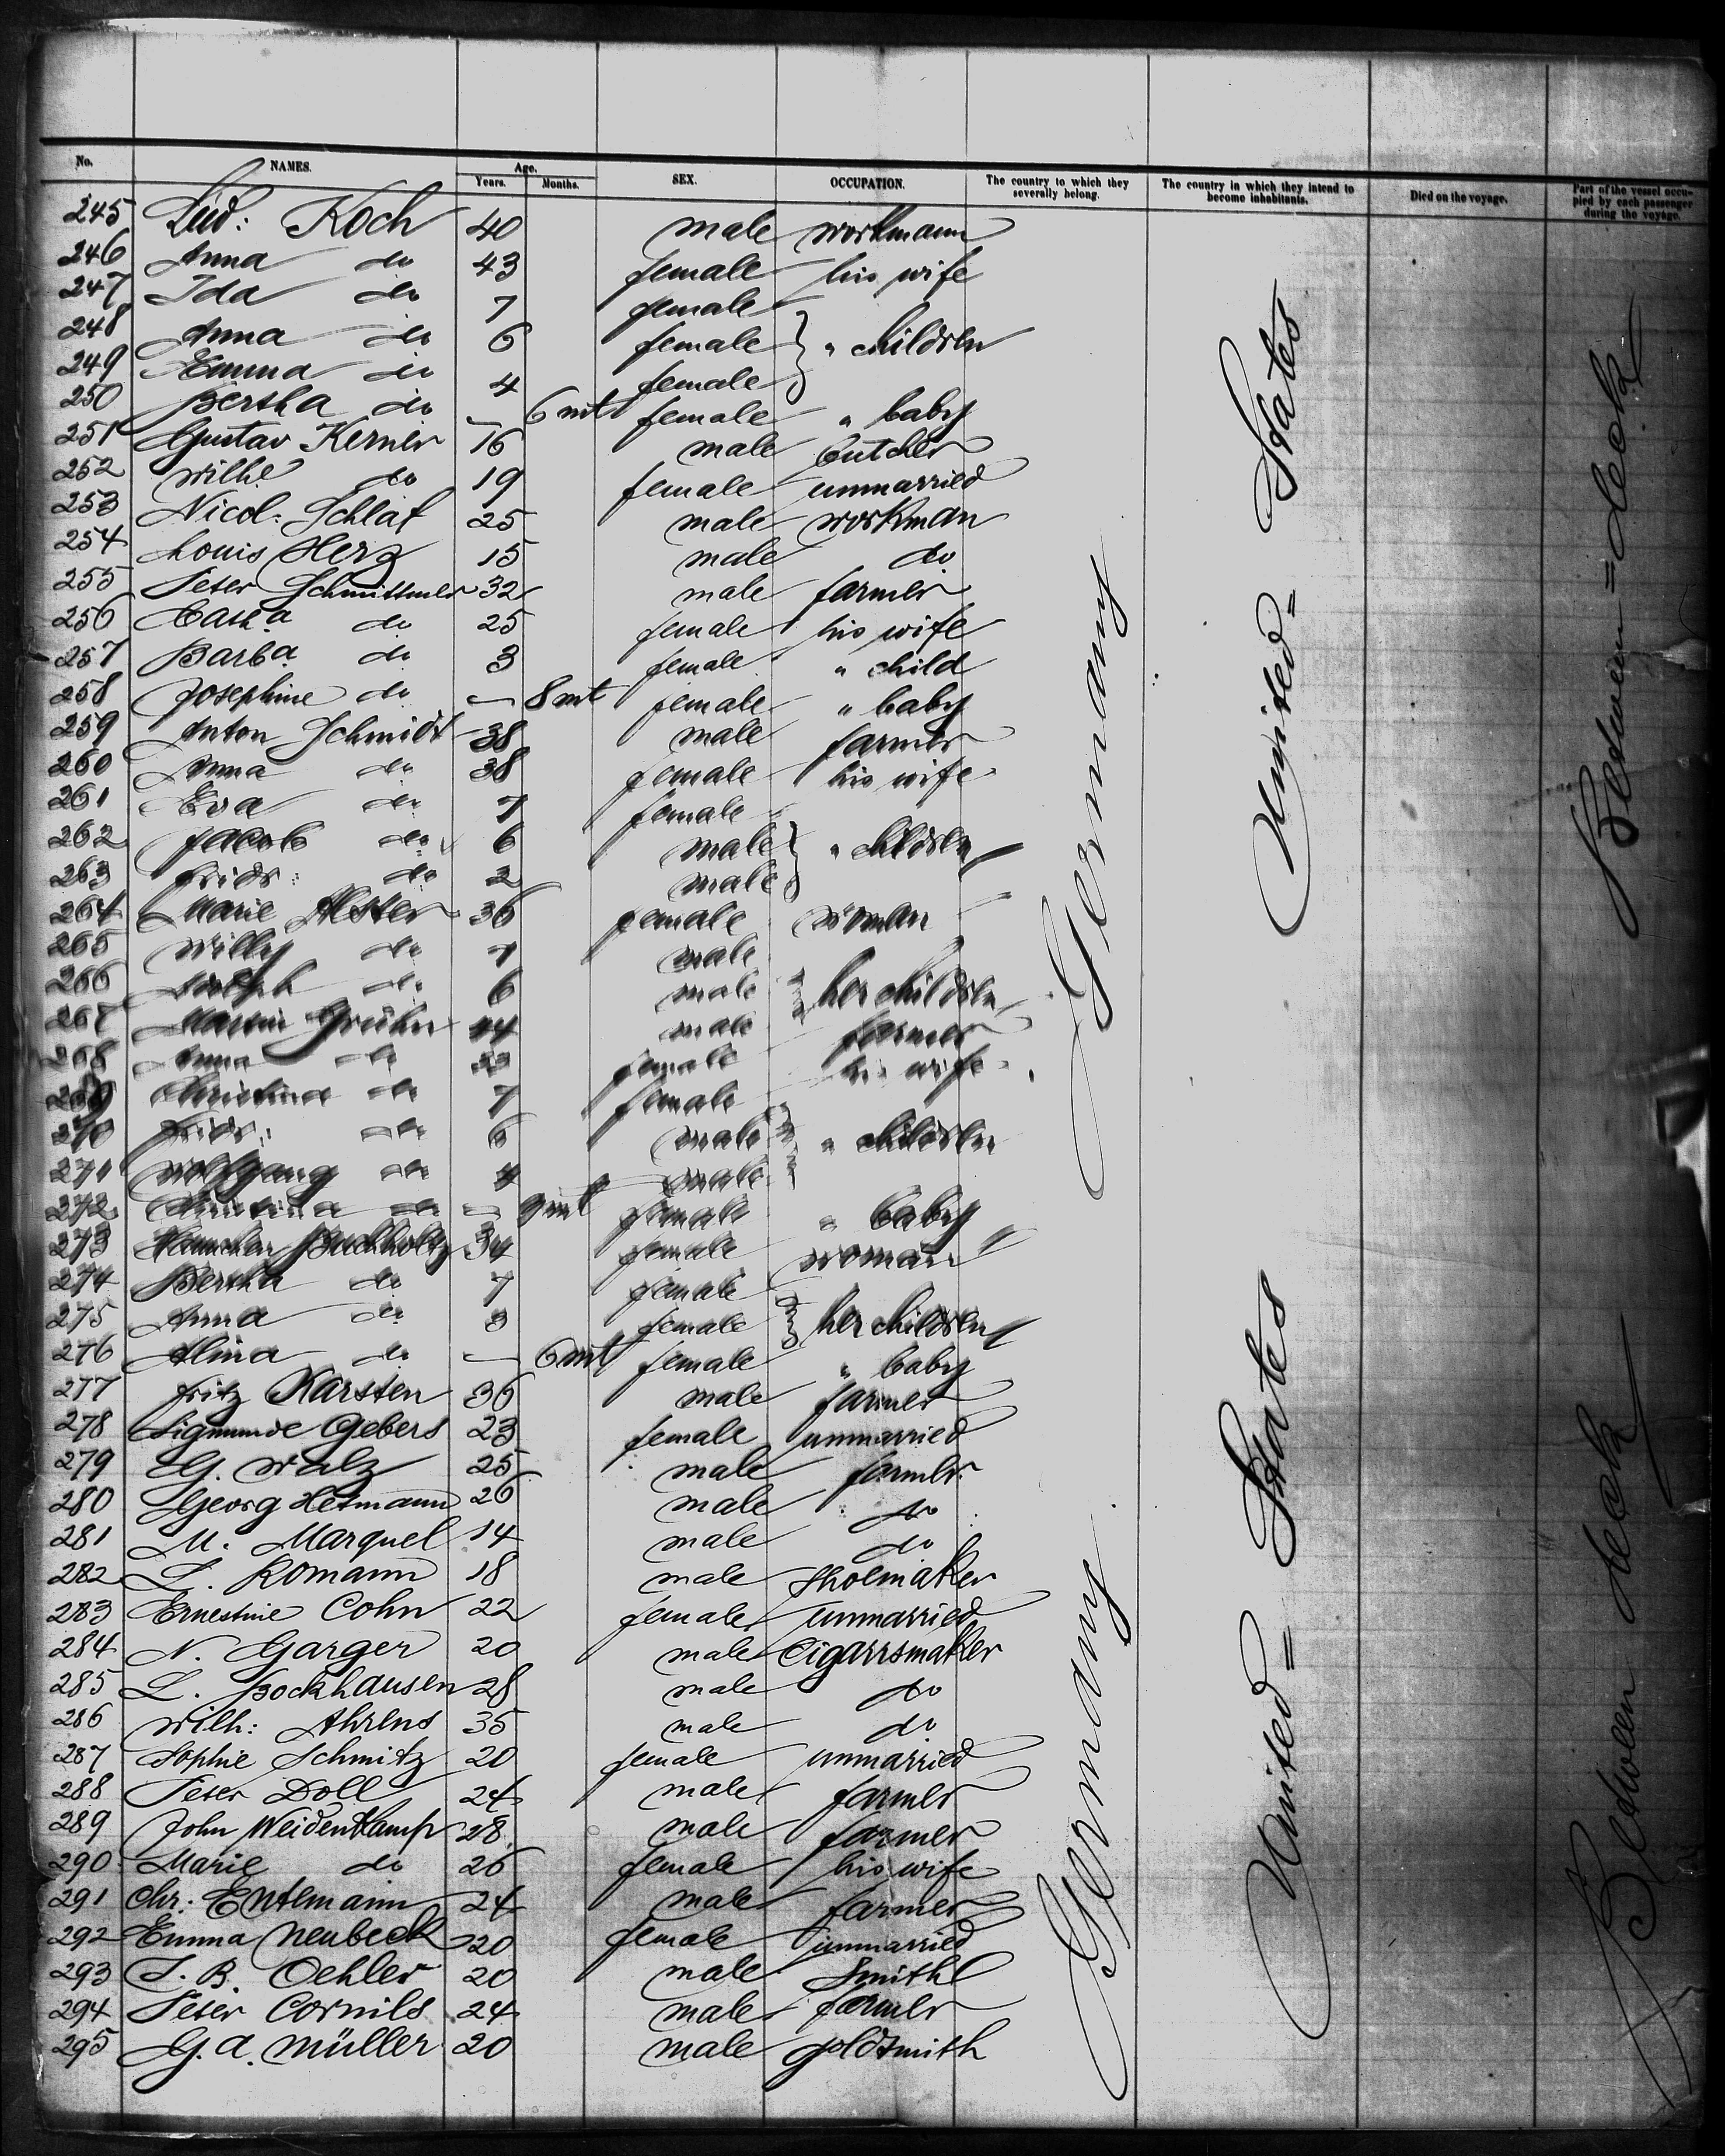 No. NAMES. Age. Years. Months. SEX. OCCUPATION. The country to which they severally belong. The country in which they intend to become inhabitants. Died on the voyage. Part of the vessel occupied by each passenger during the voyage.
245 Lud: Koch 40 male workmann
246 Anna do 43 female his wife
247 Ida do 7 female
248 Anna do 6 female } " children
249 Emma do 4 female
250 Bertha do — 6 mt female " baby
251 Gustav Kerner 16 male butcher
252 Wilhe do 19 female unmarried
253 Nicol: Schlaf 25 male workman
254 Louis Herz 15 male do
255 Peter Schmittmer 32 male farmer
256 Catha do 25 female his wife
257 Barba do 3 female " child
258 Josephine do — 8 mt female " baby
259 Anton Schmidt 38 male farmer
260 Anna do 38 female his wife
261 Eva do 7 female
262 Jacob do 6 male } " children
263 Fridr: do 2 male
264 Marie Alster 36 female woman
265 Willy do 7 male
266 Adolph do 6 male } her children
267 Martin Gruhn 44 male farmer
268 Anna do 33 female his wife
269 Christina do 7 female
270 Fridr: do 6 male } " children
271 Wolfgang do 4 male
272 Christina do — 9 mt female " baby
273 Hannchen Buchholtz 34 female woman
274 Bertha do 7 female
275 Anna do 3 female } her children
276 Alina do — 6 mt female " baby
277 Fritz Karsten 36 male farmer
278 Sigmunde Gebers 23 female unmarried
279 G. Walz 25 male farmer
280 Georg Hetmann 26 male do
281 M. Marquel 14 male do
282 L. Romann 18 male shoemaker
283 Ernestine Cohn 22 female unmarried
284 N. Garger 20 male Cigarrsmaker
285 L. Bockhausen 28 male do
286 Wilh: Ahrens 35 male do
287 Sophie Schmitz 20 female unmarried
288 Peter Doll 24 male farmer
289 John Weidenkamp 28 male farmer
290 Marie do 26 female his wife
291 Chr: Entemann 24 male farmer
292 Emma Neubeck 20 female unmarried
293 J. B. Oehler 20 male Smith
294 Peter Cornils 24 male farmer
295 G. A. Müller 20 male goldsmith
Germany
Germany
United = States
United = States
Between = deck
Between deck